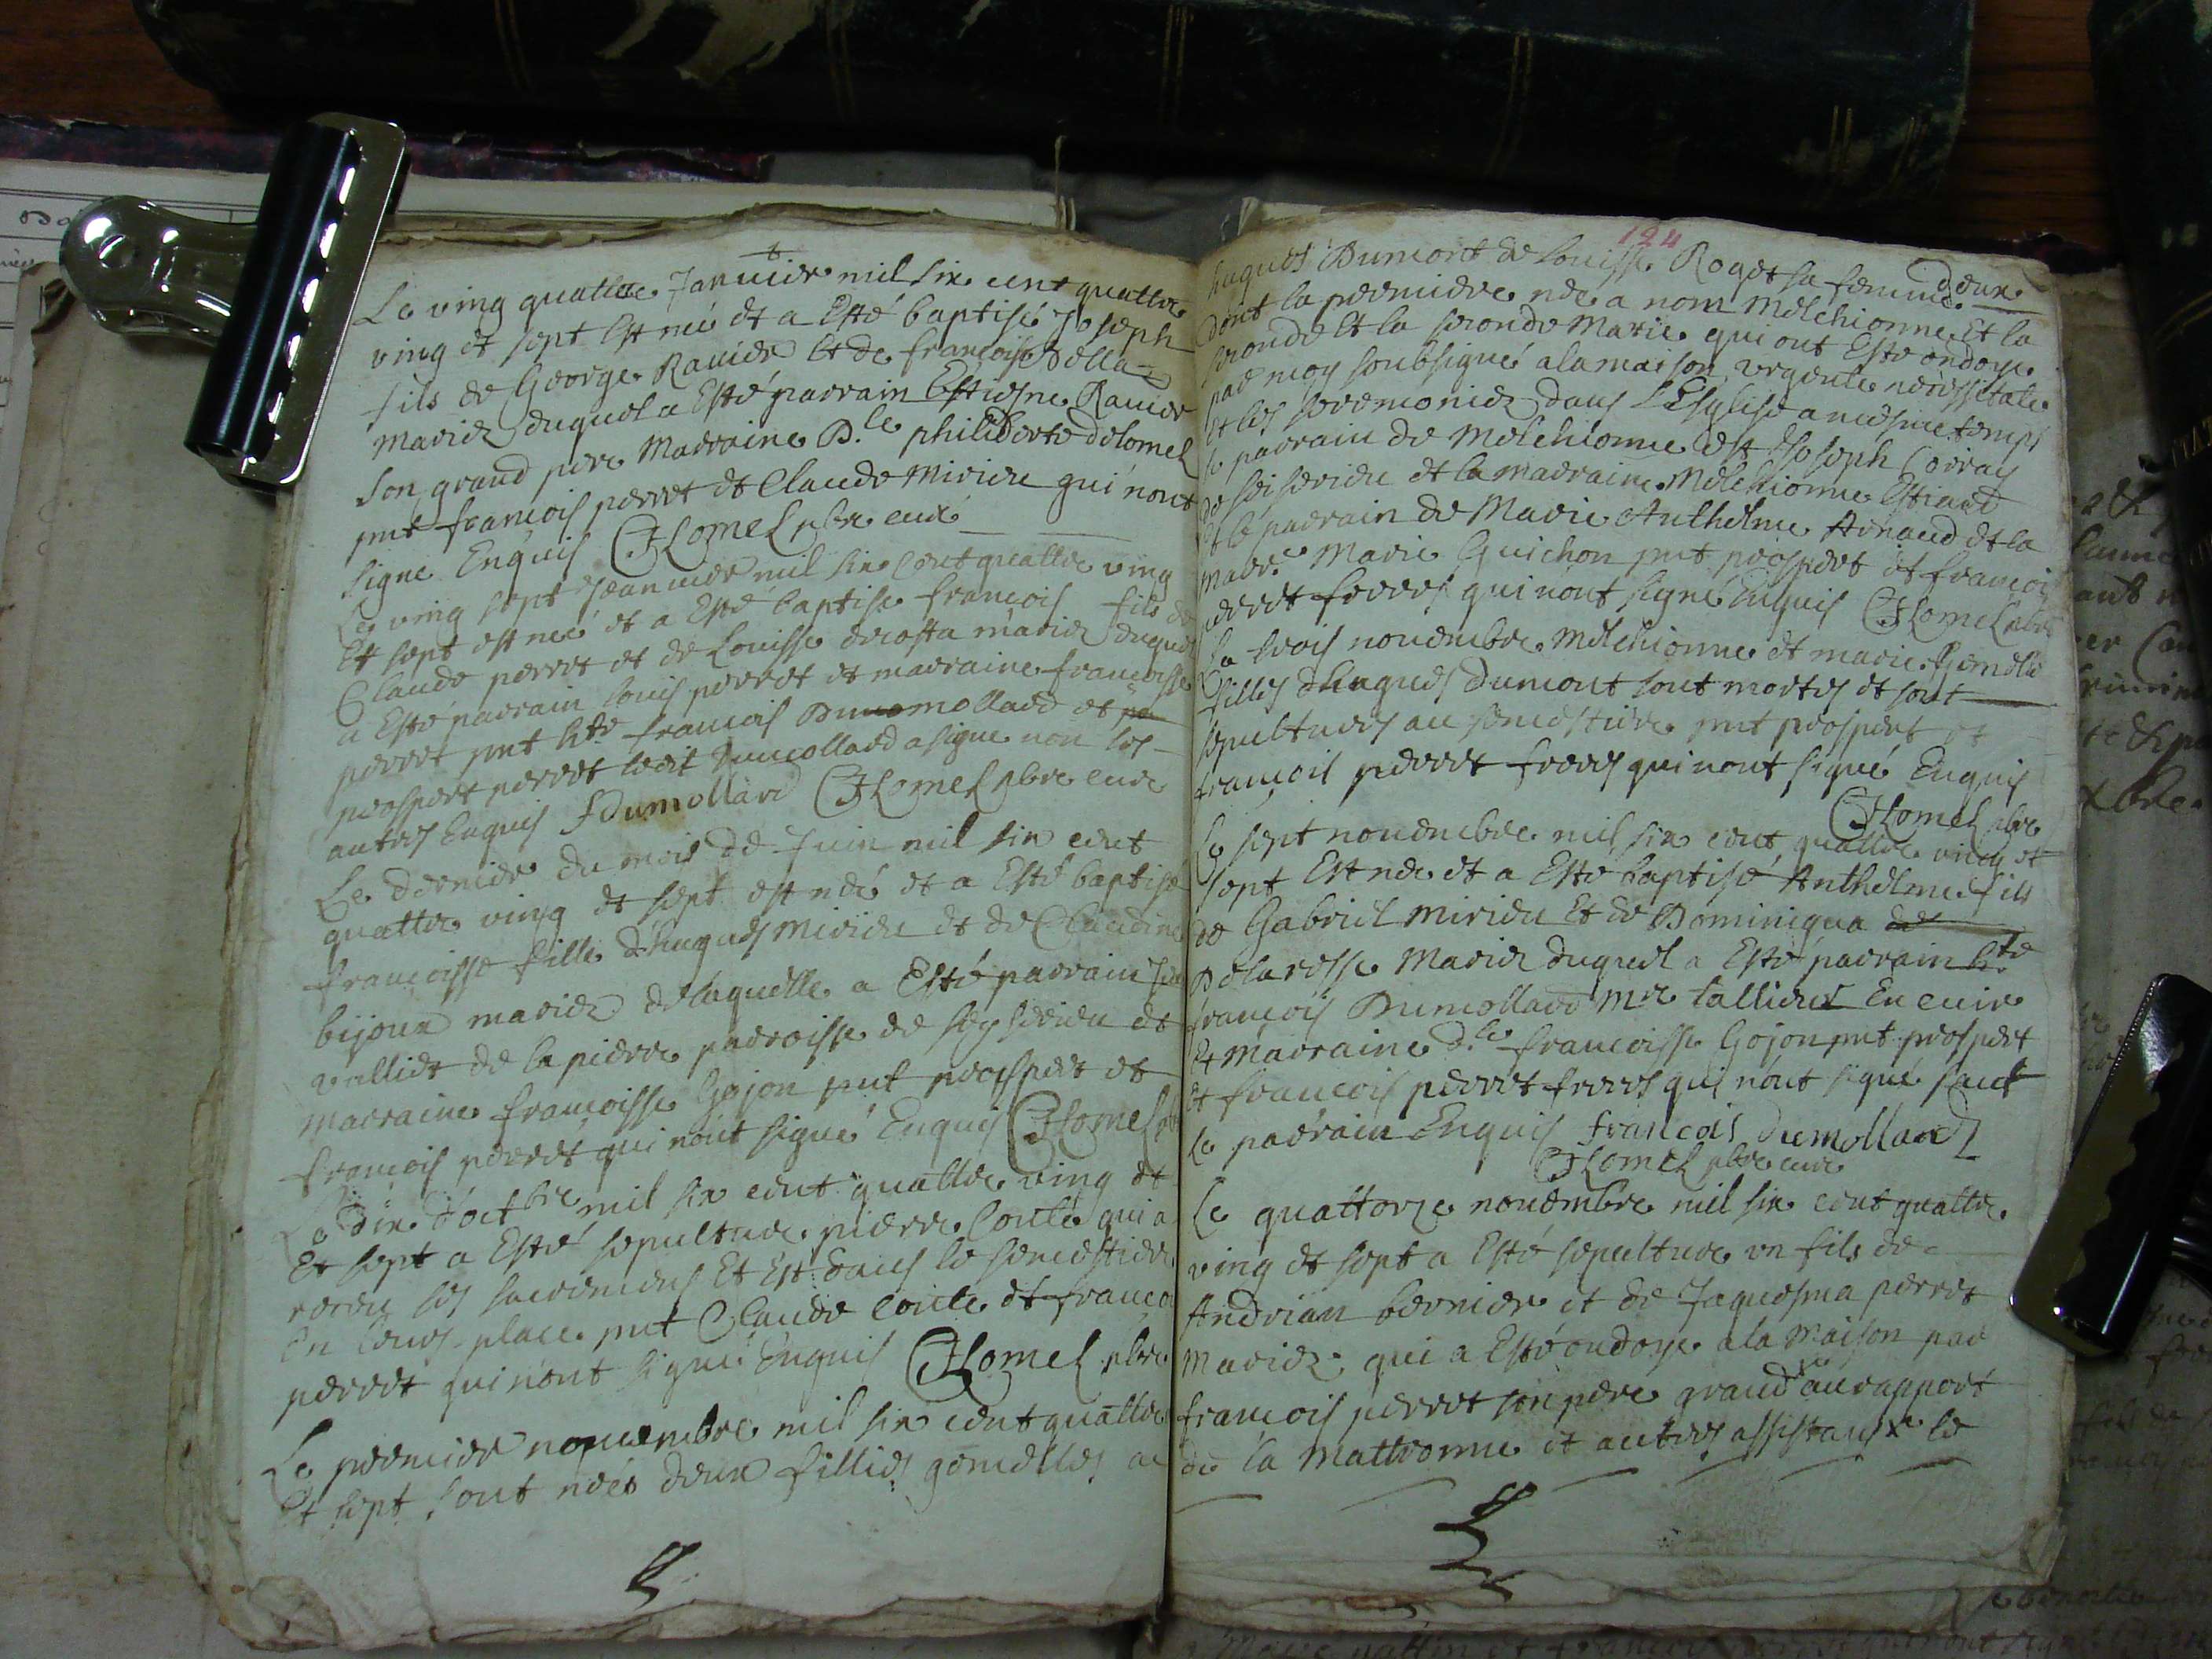 Le ving quattre Januier mil six cent quattre
ving et sept est né et a Esté baptisé Joseph
fils de George Rauier et de francoise
mariez duquel a Esté parrain Estiesne Rauier
son grand pere Marraine D.le philiberte delomel
pnt francois perret et Claude Mirieu qui nont
signe Enquis CHomel pbre curé
Le ving sept Jeanuier mil six cent quattre ving
Et sept est né et a Esté baptise francois fils de
Claude perret et de Louisse decosta mariez duquel
a Esté parrain louis perret et marraine francoisse
perret pnt hte francois Dumollard et
prospert perret ledit Dumollard a signe non les
autres Enquis fdumollard CHomel pbre curé
Le dernier du mois de Juin mil six cent
quattre ving et sept est née et a Esté baptisé
francoisse fille d'hugues Mirieu et de Claudine
bijoux mariez delaquelle a Esté parrain
valliet de la pierre parroisse de seyserieu et
marraine francoisse Gojon pnt prospert et
francois perret qui nont signé Enquis CHomel pbre
Le dix d'octbre mil six cent quattre ving et
Et sept a Esté sepulture pierre Conte qui a
receu les sacremens Et Est dans le semestiere
en leurs place pnt Claude Conte et francois
perret qui nont signé Enquis CHomel pbre
Le premier nouembre mil six cent quattre
Et sept sont nées deux filles gemelles a
124
hugues Dumont de Louisse Roget sa femme deux
dont la premiere née a nom Melchionne Et la
seconde Et la seconde Marie qui ont Esté ondoye
par moy soubsigné a la maison urgente necessitate
Et les seremonies dans L'Esglise a mesme temps
le parrain de Melchionne est Joseph
de seiserieu et la marraine Melchionne
Et le parrain de Marie Anthelme Arnaud et la
marr.e Marie Guichon pnt prospert et francois
perret freres qui nont signé Enquis CHomel pbre
Le trois nouembre Melchionne et marie Gemelle
filles d'hugues dumont sont mortes et sont
sepultures au semestiere pnt prospert et
francois perret freres qui nont signé Enquis
CHomel pbre
Le sept nouembre mil six cent quattre ving et
sept Est née et a Esté baptisé Anthelme fils
de Gabriel mirieu Et de Dominiqua de
Delaresse Mariez duquel a Esté parrain hte
francois Dumollard Mre tallieur En cuir
Et marraine d.le francoisse Gojon pnt prospert
Et francois perret freres qui nont signé sauf
Le parrain Enquis francois dumollard
CHomel pbre curé
Le quattorze nouembre mil six cent quattre
ving et sept a Esté sepulture un fils de
Andrian bernier et de Jaquesma perret
Mariez qui a Esté ondoye a la Maison par
francois perret son pere grand au rapport
de la Mattronne et autres assistans le